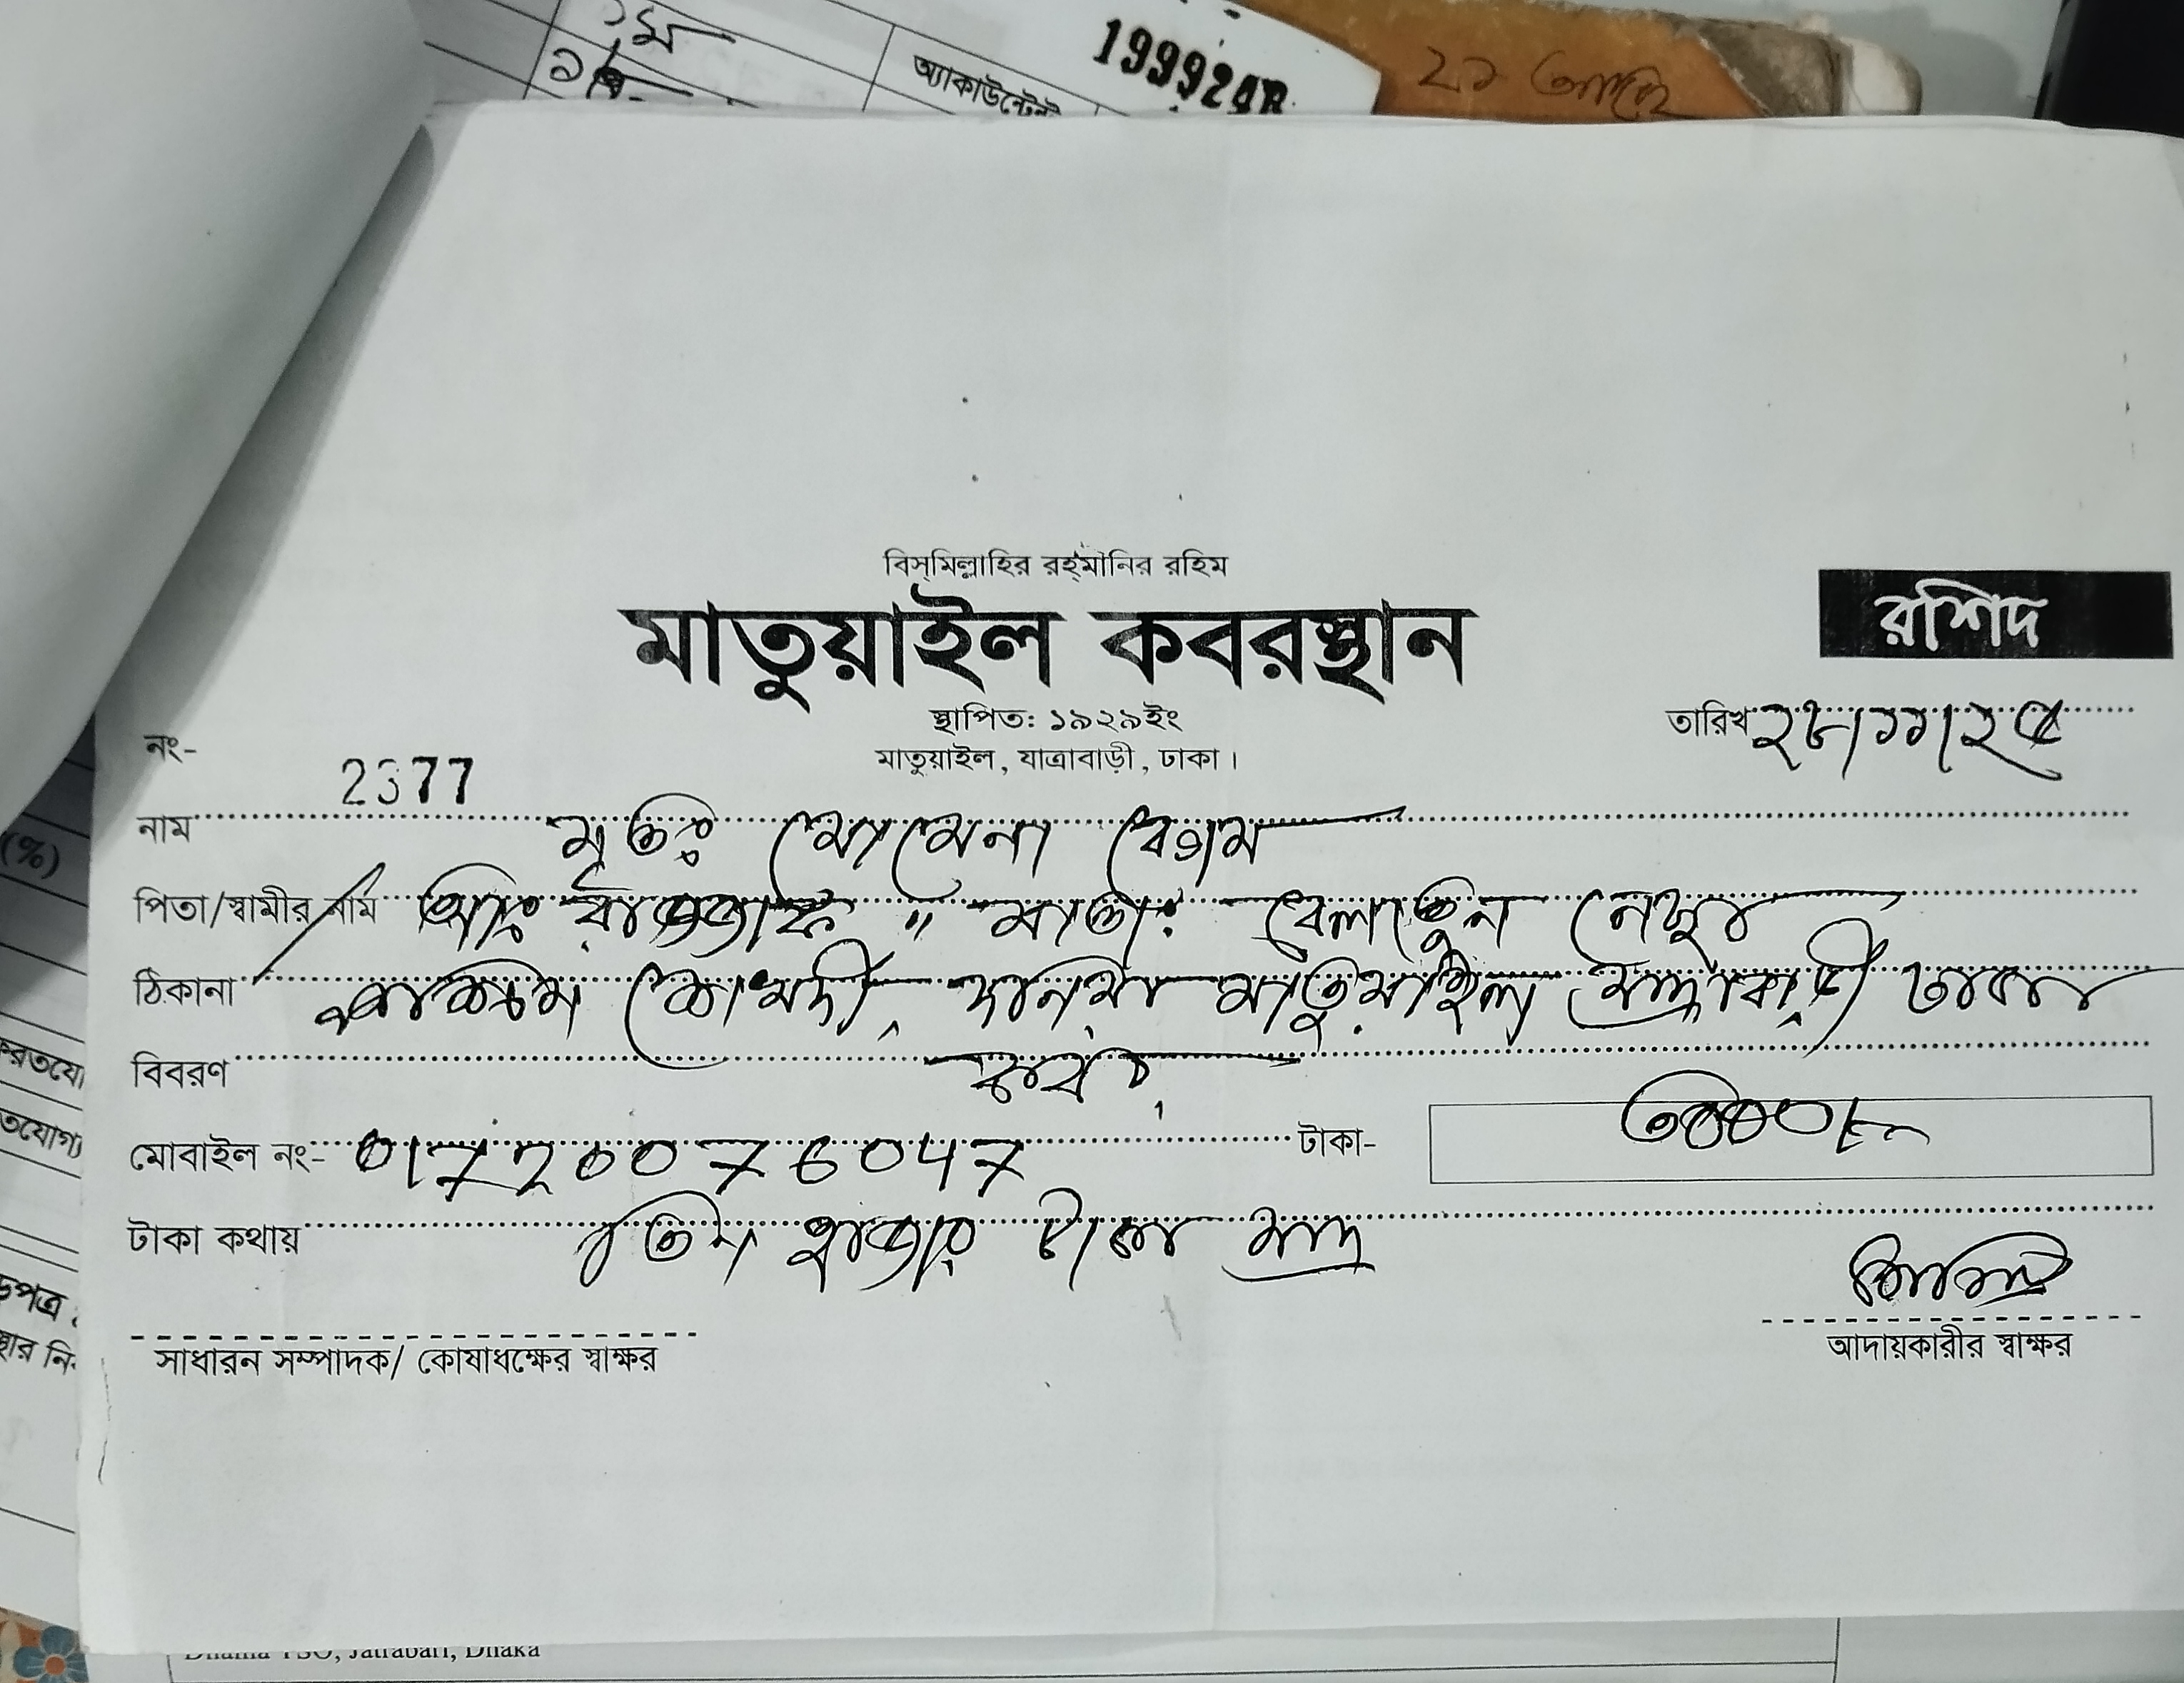 অ্যাকাউন্টেন্ট
199924
২১
বিস্‌মিল্লাহির রহ্‌মানির রহিম
মাতুয়াইল কবরস্থান
রশিদ
স্থাপিত: ১৯২৯ইং
মাতুয়াইল, যাত্রাবাড়ী, ঢাকা।
তারিখ ২৮/১১/২৫
নং- 2377
নাম মৃতঃ মোমেনা বেগম
পিতা/স্বামীর নাম রাজ্জাক মাতাঃ নেছা
ঠিকানা দনিয়া মাতুয়াইল যাত্রাবাড়ী ঢাকা
বিবরণ
মোবাইল নং- 01720076047 টাকা- ৩০০০/=
টাকা কথায় তিন হাজার টাকা মাত্র
সাধারন সম্পাদক/ কোষাধক্ষের স্বাক্ষর
আদায়কারীর স্বাক্ষর
(%)
করযো
তযোগ্য
ড়পত্র
Dhania TSO, Jatrabari, Dhaka